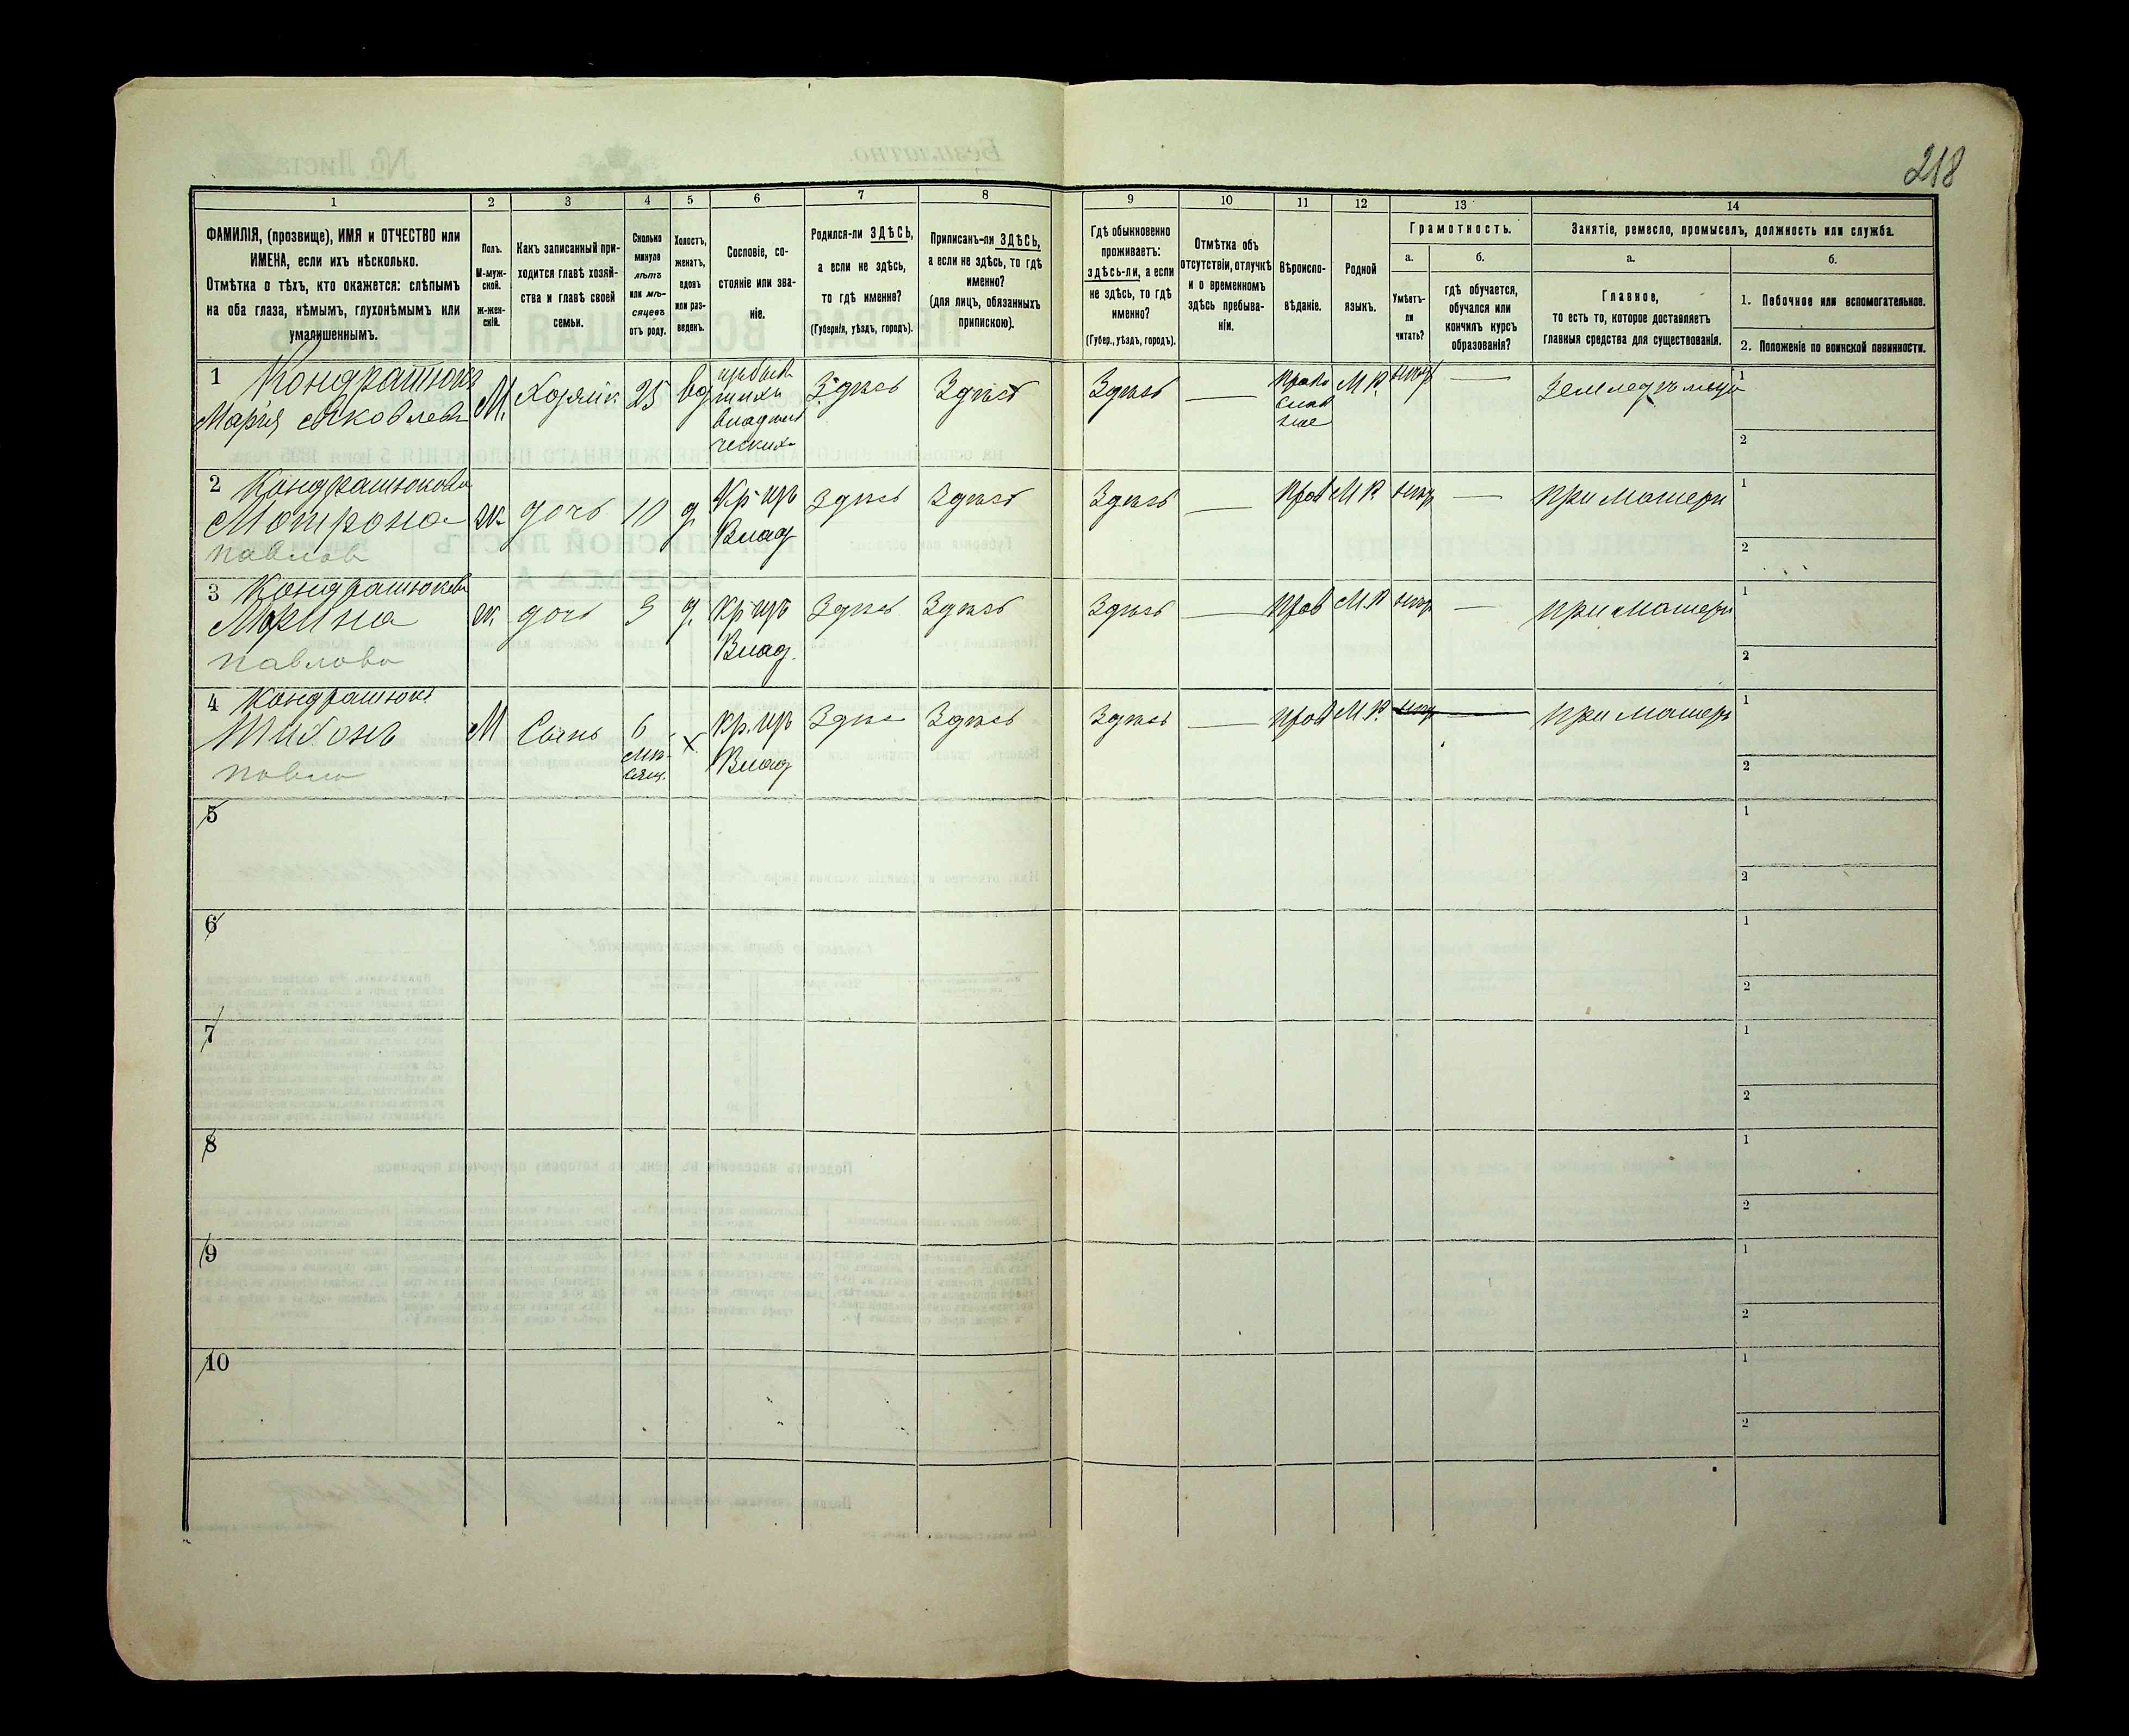 218
1 2 3 4 5 6 7 8 9 10 11 12 13 14
ФАМИЛІЯ, (прозвище), ИМЯ и ОТЧЕСТВО или
ИМЕНА, если ихъ нѣсколько.
Отмѣтка о тѣхъ, кто окажется: слѣпымъ
на оба глаза, нѣмымъ, глухонѣмымъ или
умалишеннымъ.
Полъ.
М-муж-
ской.
ж-жен-
скій.
Какъ записанный при-
ходится главѣ хозяй-
ства и главѣ своей
семьи.
Сколько
минуло
лѣтъ
или мѣ-
сяцевъ
отъ роду.
Холостъ,
женатъ,
вдовъ
или раз-
веденъ.
Сословіе, со-
стояніе или зва-
ніе.
Родился-ли ЗДѢСЬ,
а если не здѣсь,
то гдѣ именно?
(Губернія, уѣздъ, городъ).
Приписанъ-ли ЗДѢСЬ,
а если не здѣсь, то гдѣ
именно?
(для лицъ, обязанныхъ
припискою).
Гдѣ обыкновенно
проживаетъ:
здѣсь-ли, а если
не здѣсь, то гдѣ
именно?
(Губер., уѣздъ, городъ).
Отмѣтка объ
отсутствіи, отлучкѣ
и о временномъ
здѣсь пребыва-
ніи.
Вѣроиспо-
вѣданіе.
Родной
языкъ.
Грамотность.
а. б.
Умѣетъ-
ли
читать?
гдѣ обучается,
обучался или
кончилъ курсъ
образованія?
Занятіе, ремесло, промыселъ, должность или служба.
а. б.
Главное,
то есть то, которое доставляетъ
главныя средства для существованія.
1. Побочное или вспомогательное.
2. Положеніе по воинской повинности.
1 Кондратюкъ
Марія Яковлев
М. Хозяйк 25 вд
Здѣсь Здѣсь Здѣсь —
Право
слав
ное
М.Р. —
Земледѣлецъ
1
2
2 Кондратюкова
Матрона
павлов
ж. дочь 10 д.
Кр. пр
Влад
Здѣсь Здѣсь Здѣсь — прав М.Р. — при матери
1
2
3 Кондратюкова
Марина
павлова
ж. дочь 3 д.
Кр пр
Влад.
Здѣсь Здѣсь Здѣсь — прав М.Р — при матери
1
2
4 Кондратюкъ
Тихонъ
павло
М Сынъ
6
мѣ-
сяц.
х.
Кр. пр
Влад
Здѣсь Здѣсь Здѣсь — прав М.Р. при матери
1
2
5 1
2
6 1
2
7 1
2
8 1
2
9 1
2
10 1
2